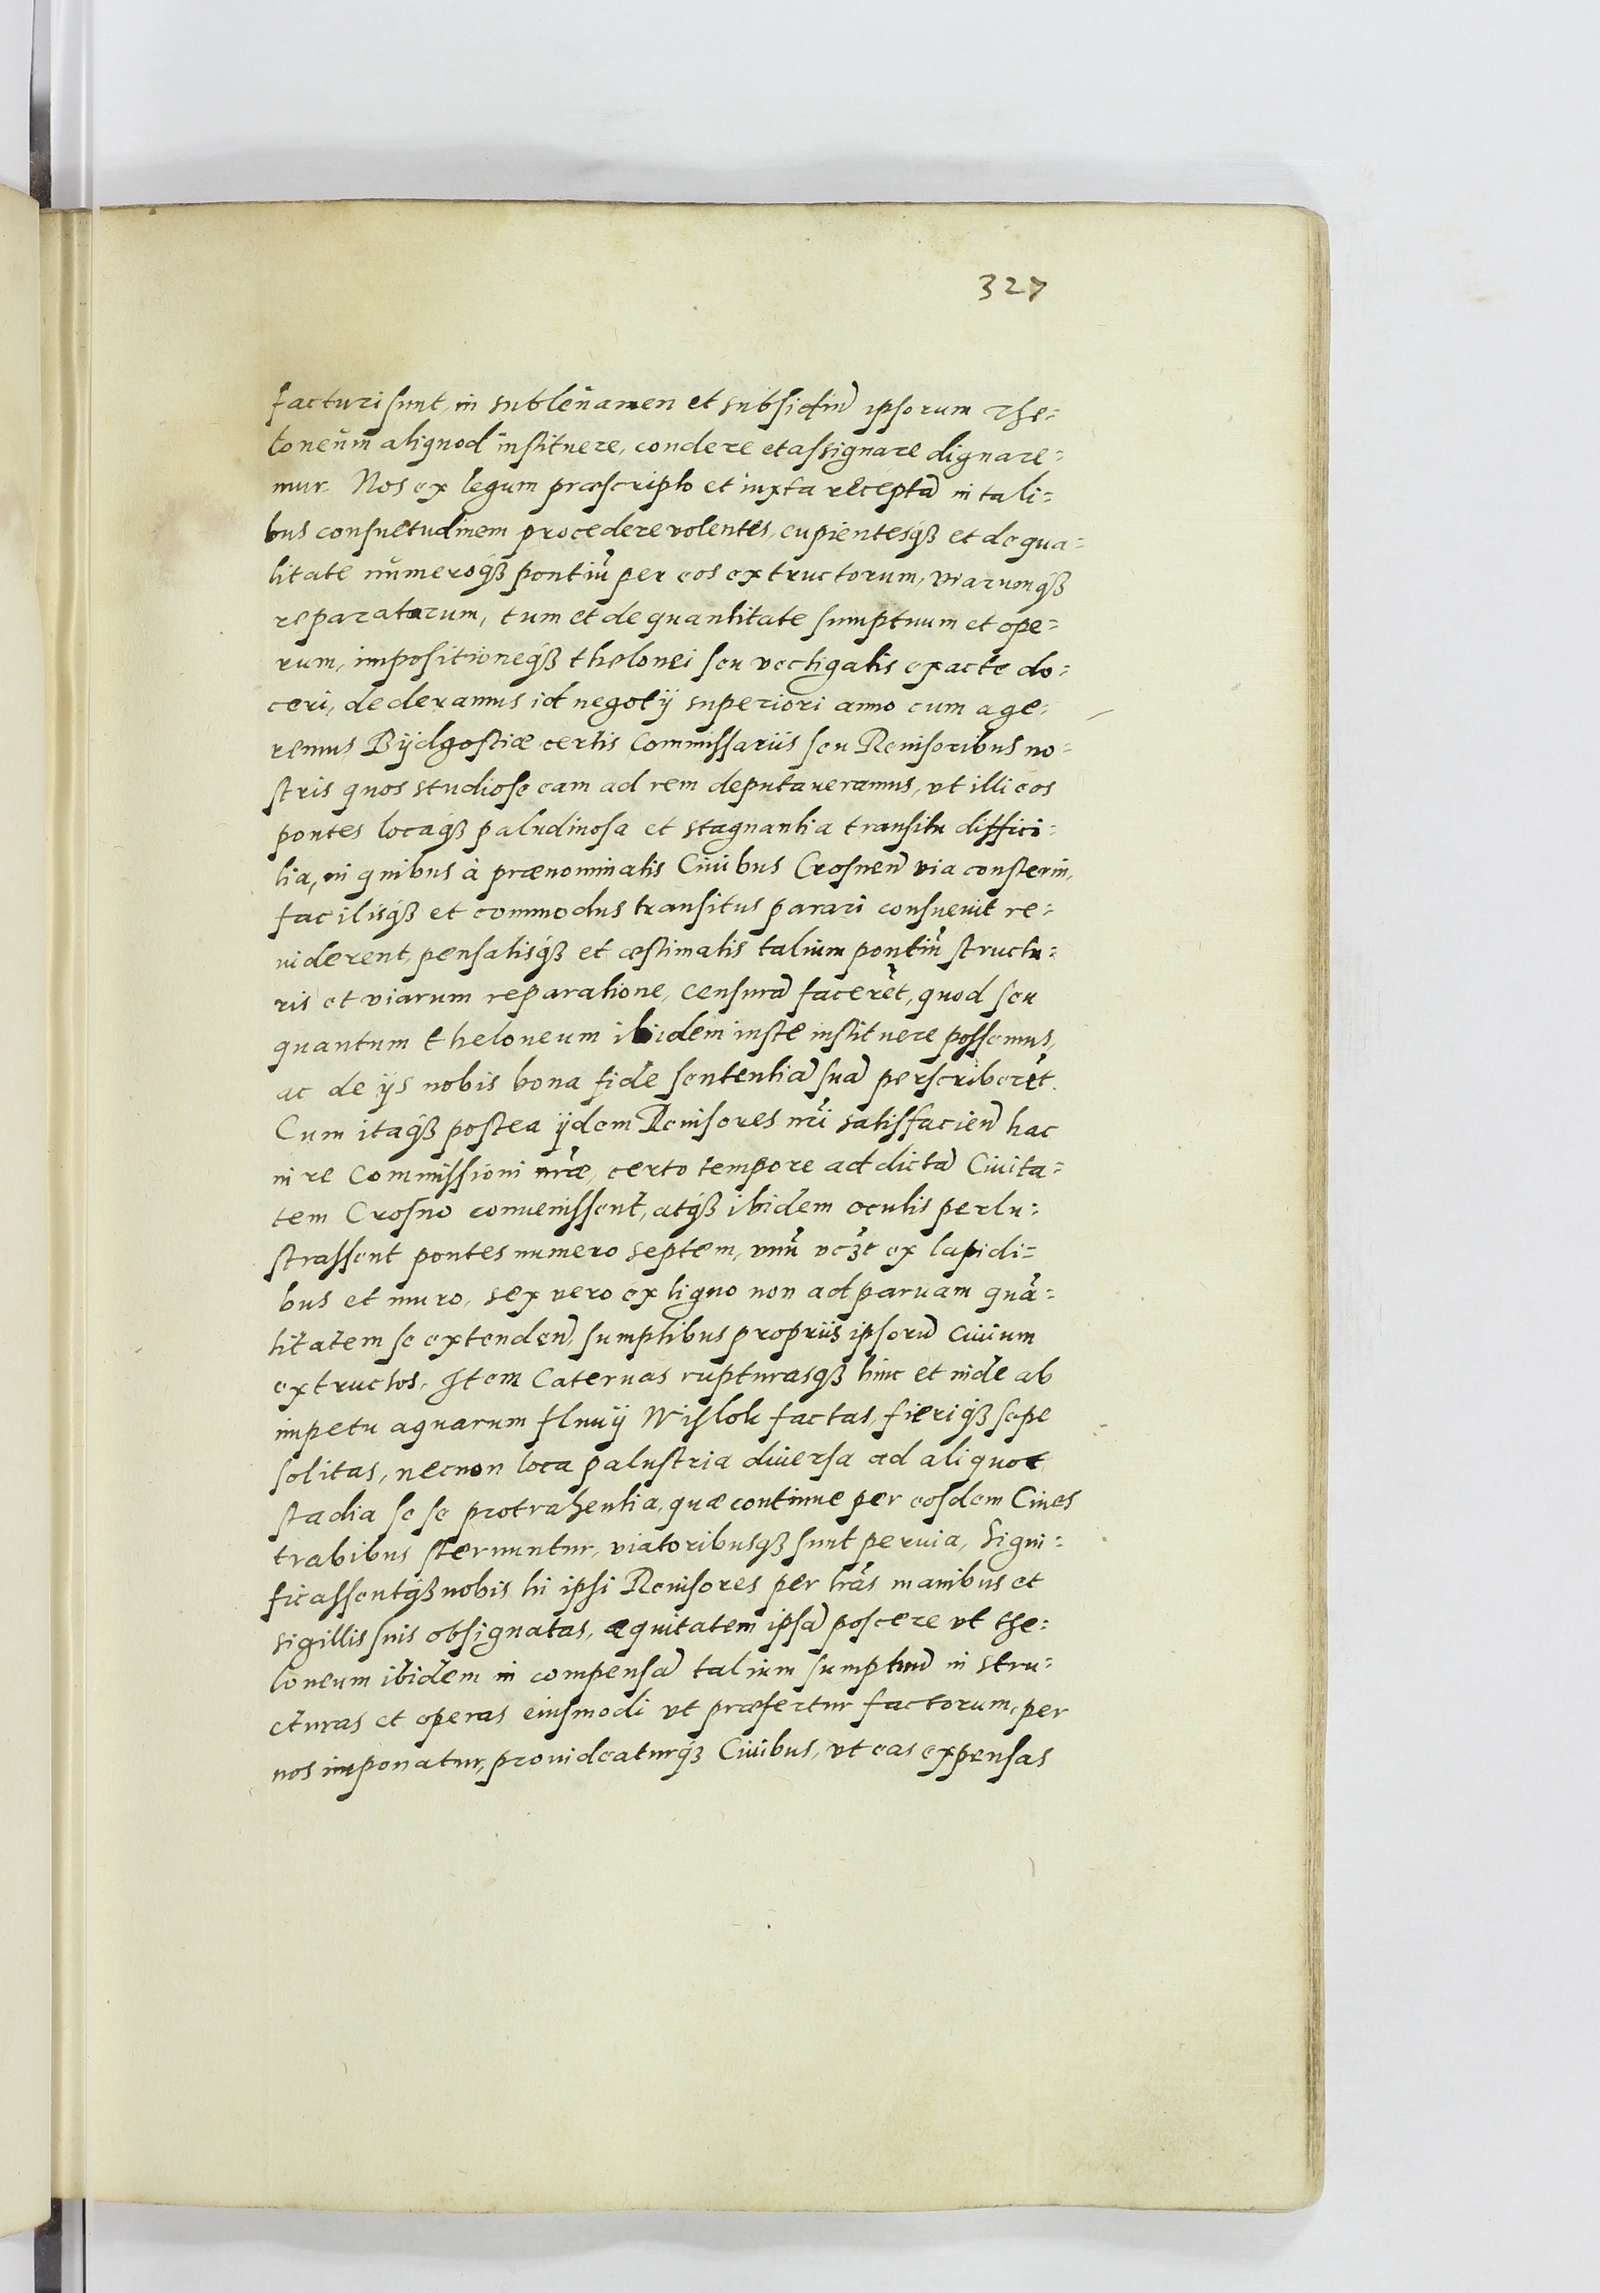 327
facturi sunt, in subleuamen et subsidiu͂ ipsorum The=
loneum aliquod instituere, condere et assignare dignare=
mur. Nos ex legum præscripto et iuxta recepta͂ in tali=
bus consuetudinem procedere volentes, cupientesq́ꝫ et de qua=
litate numeroq́ꝫ pontiu͂ per eos extructorum, viarumq́ꝫ
reparatarum, tum et de quantitate sumptuum et ope=
rum, impositioneq́ꝫ thelonei seu vectigalis exacte do=
ceri, dederamus id negotij superiori anno cum age=
remus Bydgostiæ certis Commissariis seu Reuisoribus no=
stris quos studiose eam ad rem deputaueramus, vt illi eos
pontes locaq́ꝫ paludinosa et stagnantia transitu diffici=
lia, in quibus à prænominatis Ciuibus Crosnen͂ via consterni,
facilisq́ꝫ et commodus transitus parari consueuit re=
uiderent, pensatisq́ꝫ et æstimatis talium pontiu͂ structu=
ris et viarum reparatione, censura͂ facere͂t, quod seu
quantum theloneum ibidem iuste instituere possemus,
ac de ijs nobis bona fide sententia͂ sua͂ perscribere͂t.
Cum itaq́ꝫ postea ijdem Reuisores nr͂i satisfacien͂ hac
in re Commissioni nr͂æ, certo tempore ad dicta͂ Ciuita=
tem Crosno conuenissent, atq́ꝫ ibidem oculis perlu=
strassent pontes numero septem, vnu͂ vcꝫt ex lapidi=
bus et muro, sex vero ex ligno non ad paruam qua͂=
titatem se extenden͂, sumptibus propriis ipsoru͂ Ciuium
extructos. Item Cateruas rupturasq́ꝫ hinc et inde ab
impetu aquarum fluuij Wislok factas, fieriq́ꝫ sepe
solitas, necnon loca palustria diuersa ad aliquot
stadia se se protrahentia, quæ continue per eosdem Ciues
trabibus sternuntur, viatoribusq́ꝫ sunt peruia, Signi=
ficassentq́ꝫ nobis hi ipsi Reuisores per lr͂as manibus et
sigillis suis obsignatas, æquitatem ipsa͂ poscere vt the=
loneum ibidem in compensa͂ talium sumptuu͂ in stru=
cturas et operas eiusmodi vt præfertur factorum, per
nos imponatur, prouideaturq́ꝫ Ciuibus, vt eas expensas